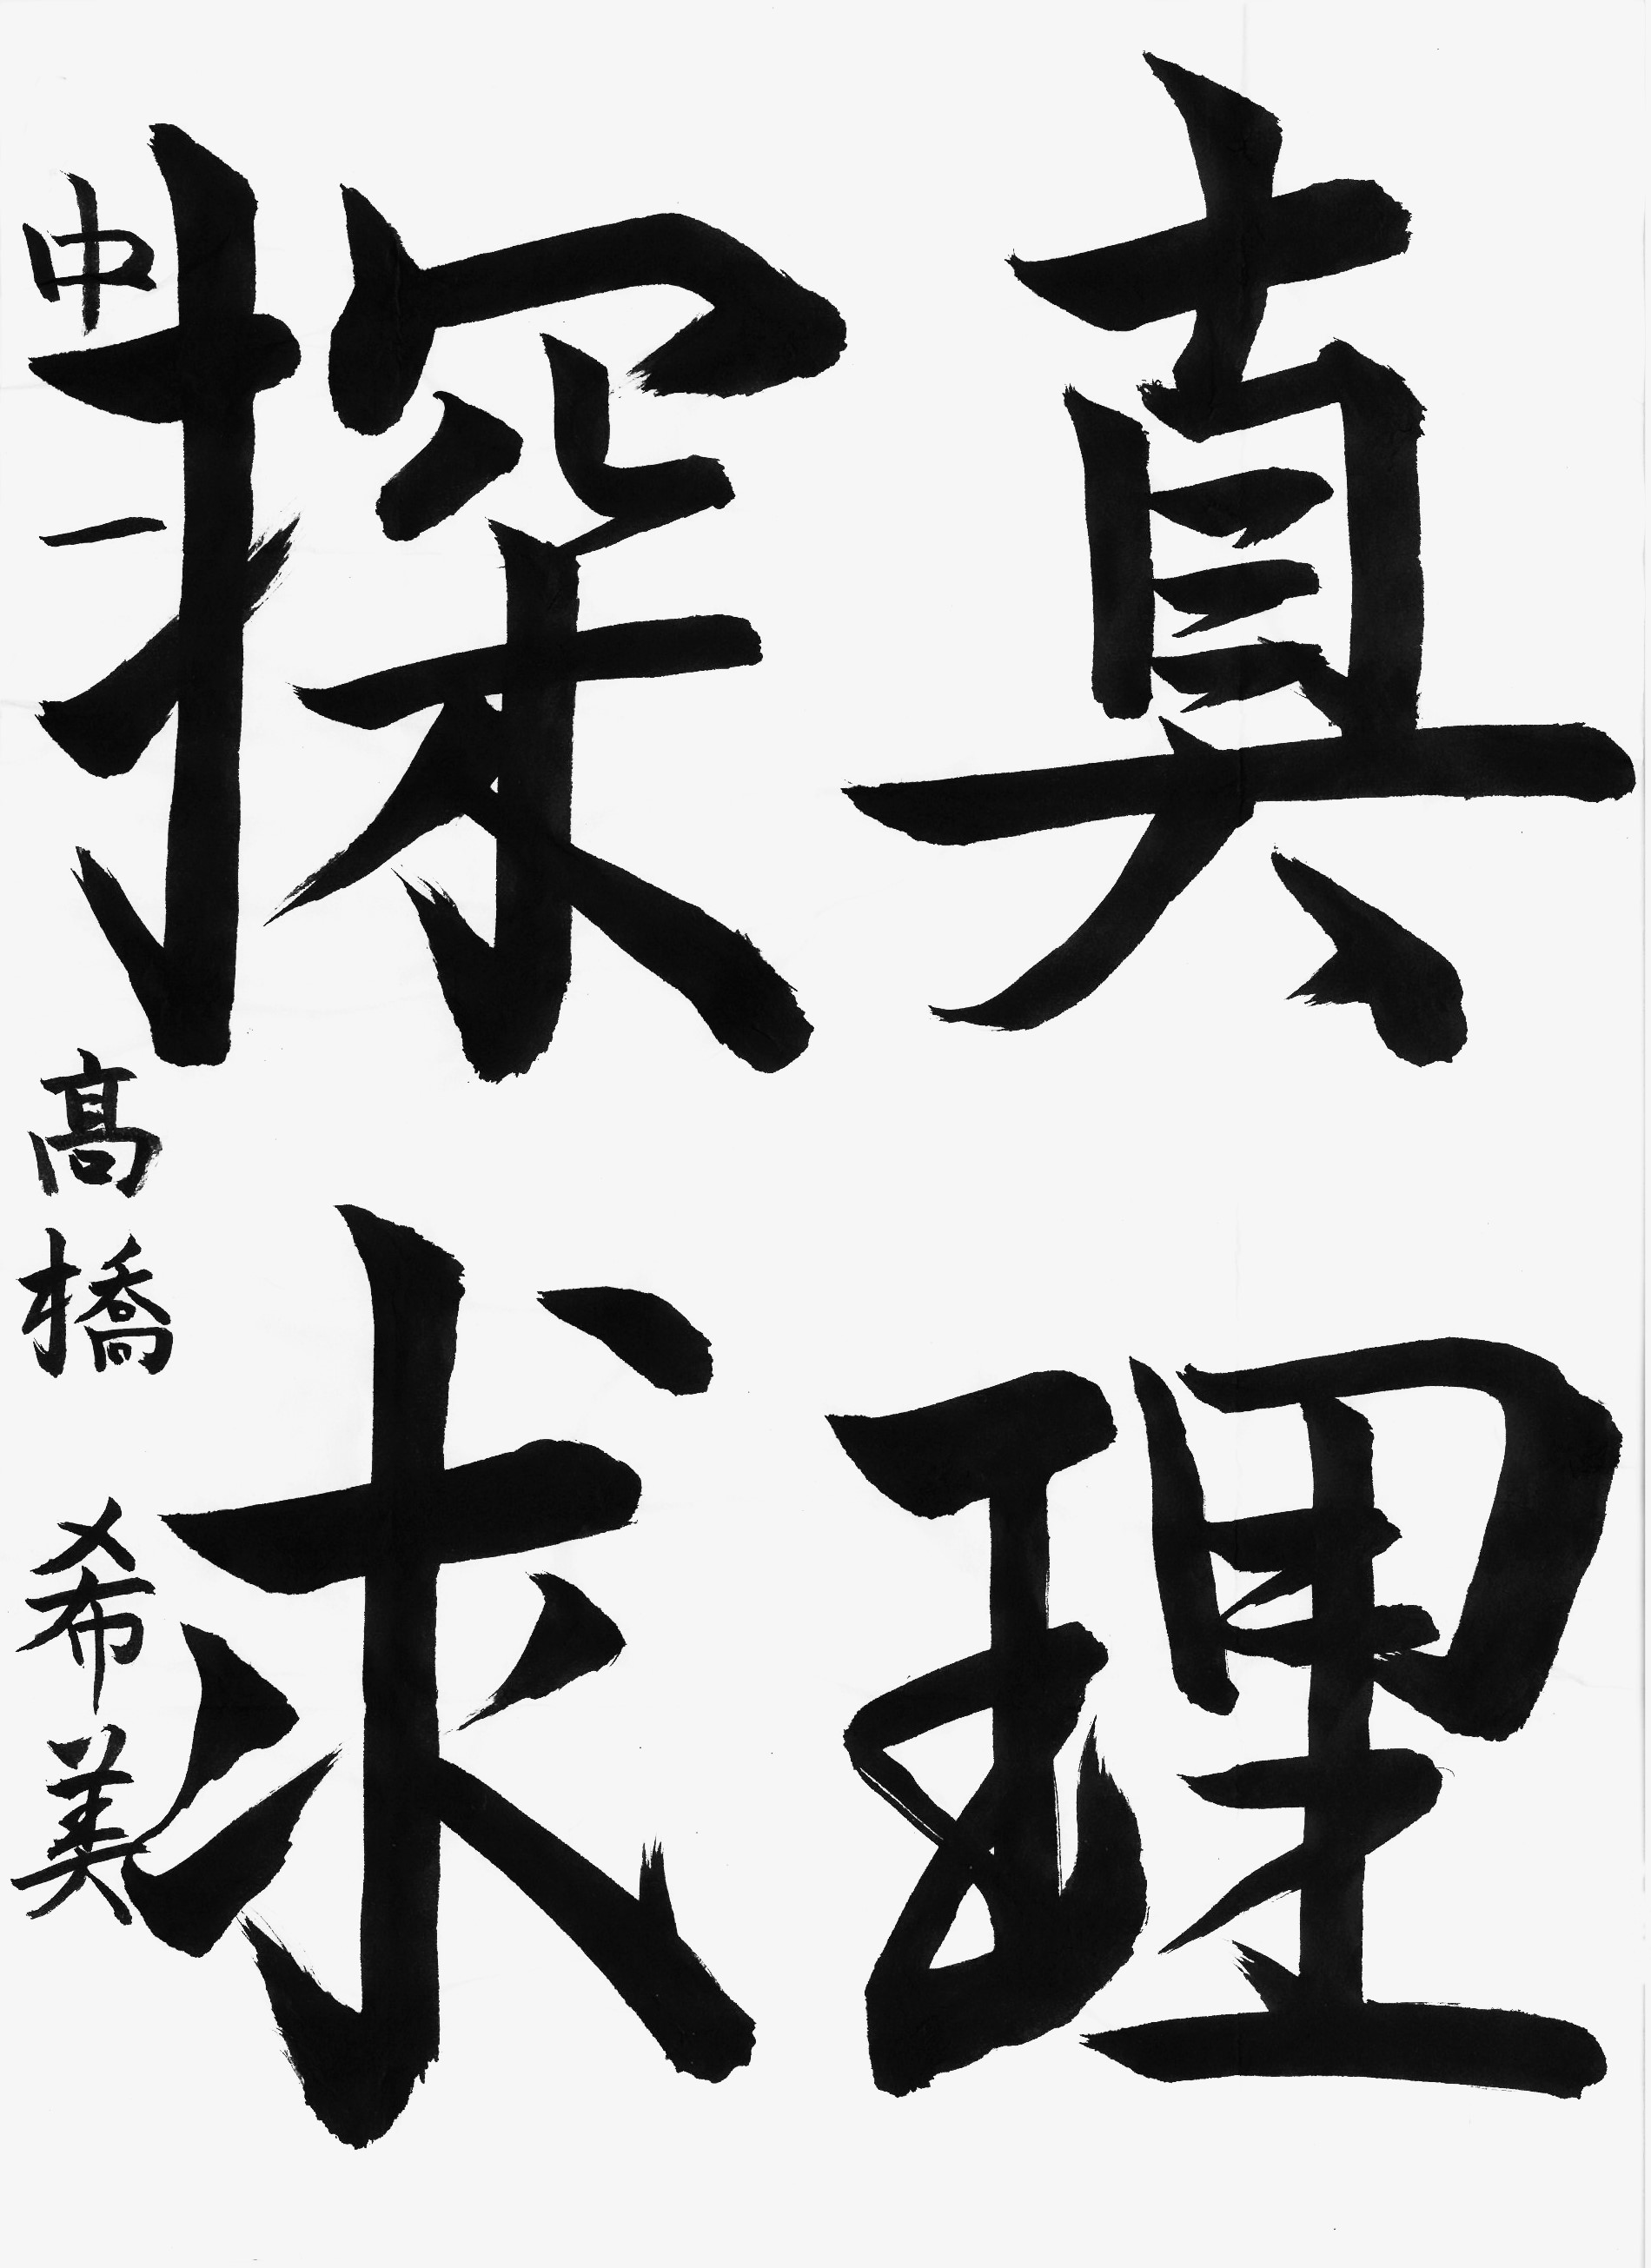 真理
探求
中一 髙橋 希美